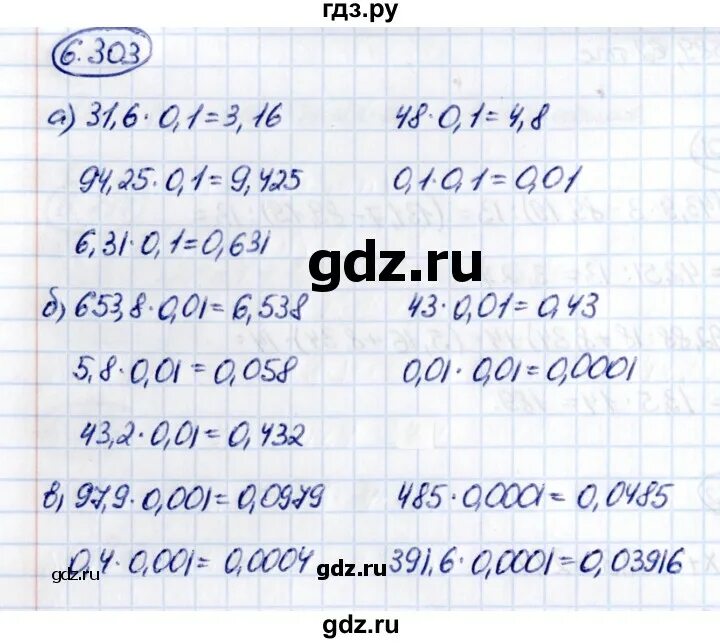 гдз.ру
6.303
а) 31,6 · 0,1 = 3,16 48 · 0,1 = 4,8
94,25 · 0,1 = 9,425 0,1 · 0,1 = 0,01
6,31 · 0,1 = 0,631
gdz.ru
б) 653,8 · 0,01 = 6,538 43 · 0,01 = 0,43
5,8 · 0,01 = 0,058 0,01 · 0,01 = 0,0001
43,2 · 0,01 = 0,432
в) 97,9 · 0,001 = 0,0979 485 · 0,0001 = 0,0485
0,4 · 0,001 = 0,0004 391,6 · 0,0001 = 0,03916
gdz.ru
gdz.ru
gdz.ru